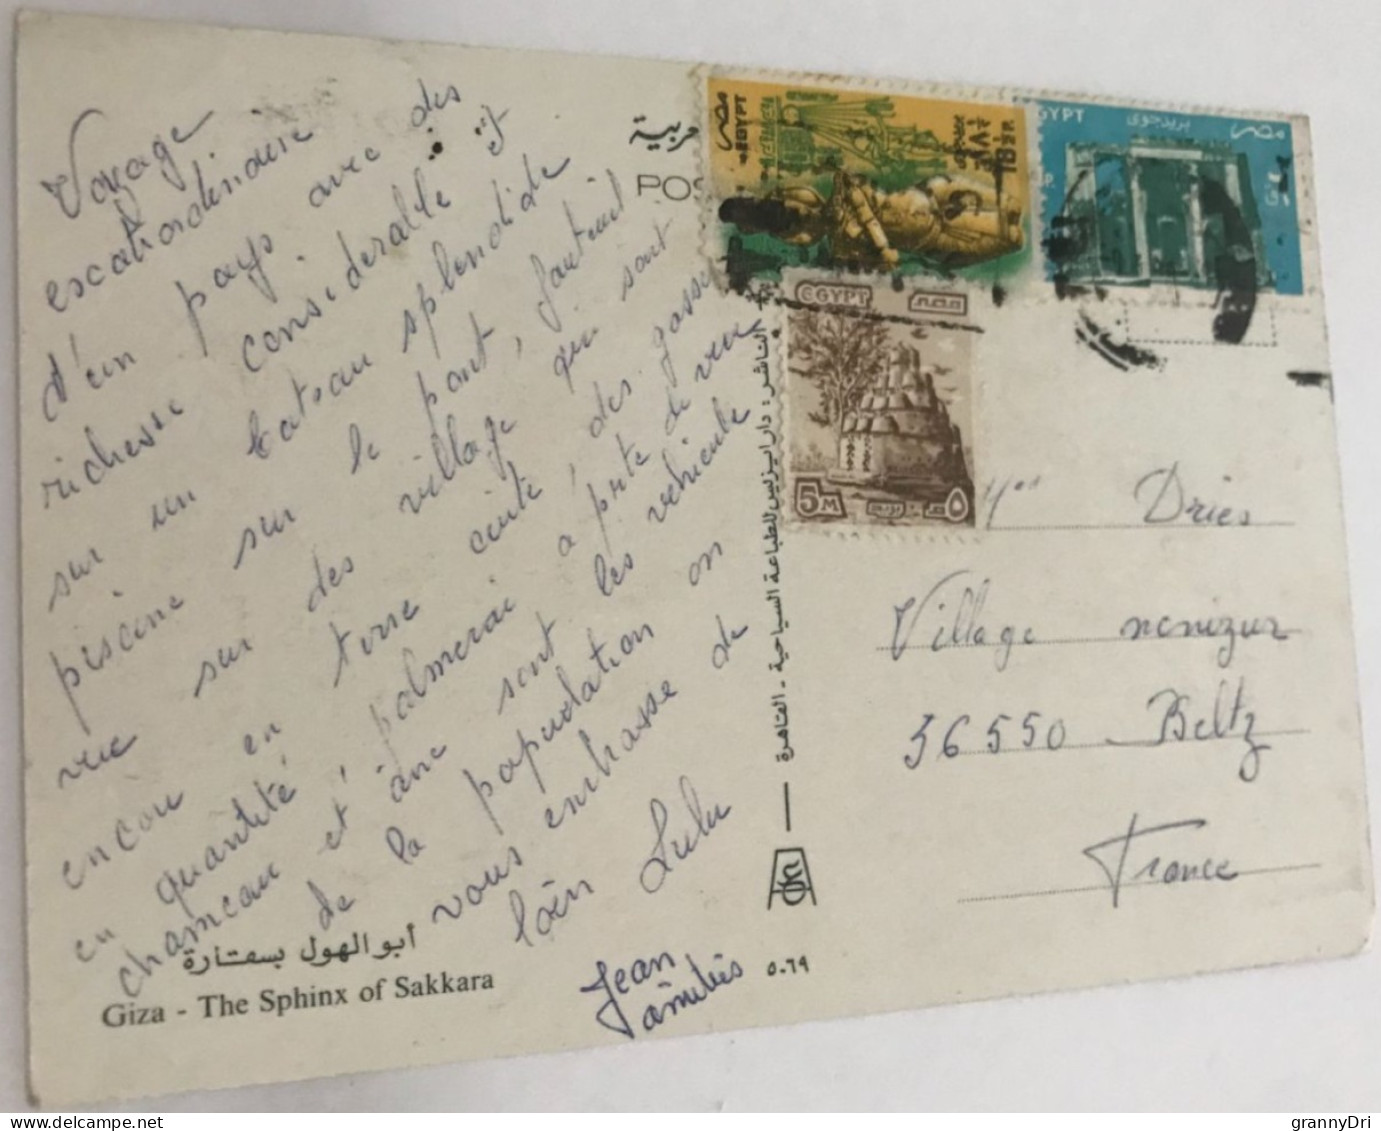 Voyage
escatrordinaire
d'un pays avec des
richesse considerable et
sur un bateau splendide
piscine sur le pont, fauteuil
vue sur des village qui sont
encou en terre cuite, des gasse
en quantité, palmerai a perte de vue
chameau et âne sont les vehicule
de la population on
vous enrhasse de
loin Lulu
Jean
amitiés
أبو الهول بسقارة
Giza - The Sphinx of Sakkara
٥٠٦٩
الناشر: دار ايزيس للطباعة السياحية - القاهرة
POS
EGYPT
مصر
EGYPT
بريد جوى
مصر
EGYPT
مصر
5M
٥
Dries
Village
56550 Beltz
France
grannyDri